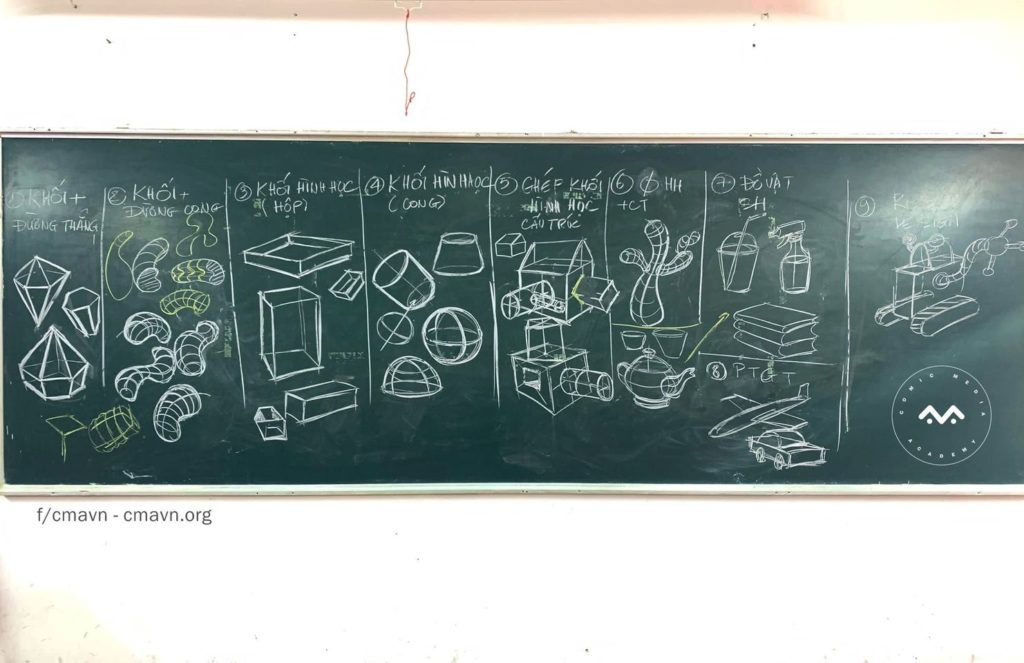 ① KHỐI +
ĐƯỜNG THẲNG
② KHỐI +
ĐƯỜNG CONG
③ KHỐI HÌNH HỌC
(HỘP)
④ KHỐI HÌNH HỌC
(CONG)
⑤ GHÉP KHỐI
HÌNH HỌC
CẤU TRÚC
⑥ HH
+CT
⑦ ĐỒ VẬT
SH
⑧ PTGT
⑨
COMIC MEDIA
ACADEMY
f/cmavn - cmavn.org